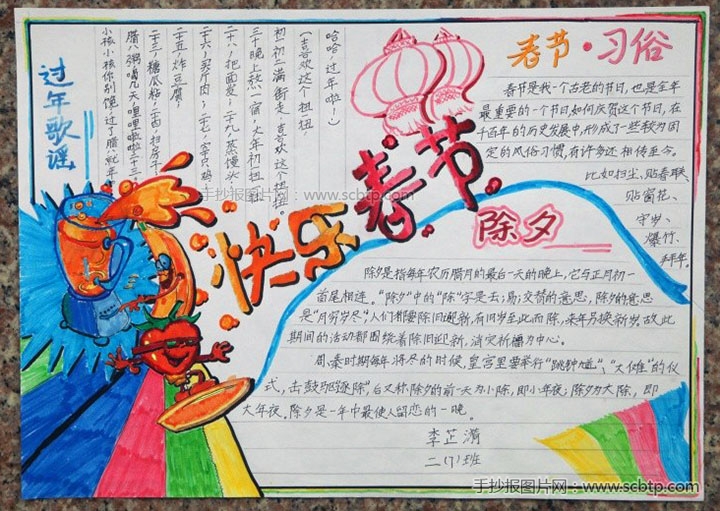 过年歌谣
小孩小孩你别馋,过了腊八就年,
腊八粥,喝几天,哩哩啦啦二十三,
二十三,糖瓜粘,二十四,扫房子,
二十五,炸豆腐,
二十六,买斤肉,二十七,宰只鸡,
二十八,把面发,二十九,蒸馒头,
三十晚上熬一宿,大年初一扭一扭
初一初二满街走,喜欢这个扭扭。
(喜欢这个扭一扭
哈哈,过年啦!)
快乐春节
春节·习俗
春节是我一个古老的节日,也是全年
最重要的一个节日,如何庆贺这个节日,在
千百年的历史发展中,形成了一些较为固
定的风俗习惯,有许多还相传至今。
比如扫尘,贴春联、
贴窗花、
守岁、
爆竹、
拜年。
除夕
除夕是指每年农历腊月的最后一天的晚上,它与正月初一
首尾相连。“除夕”中的“除”字是去;易;交替的意思,除夕的意思
是“月穷岁尽”,人们都要除旧迎新,有旧岁至此而除,来年另换新岁。故此
期间的活动都围绕着除旧迎新,消灾祈福为中心。
周、秦时期每年将尽的时候,皇宫里要举行“跳钟馗”、“大傩”的仪
式,击鼓驱逐除”,后又称除夕的前一天为小除,即小年夜;除夕为大除,即
大年夜。除夕是一年中最使人留恋的一晚。
李芷漪
二(7)班
手抄报图片网:www.scbtp.com
手抄报图片网:www.scbtp.com